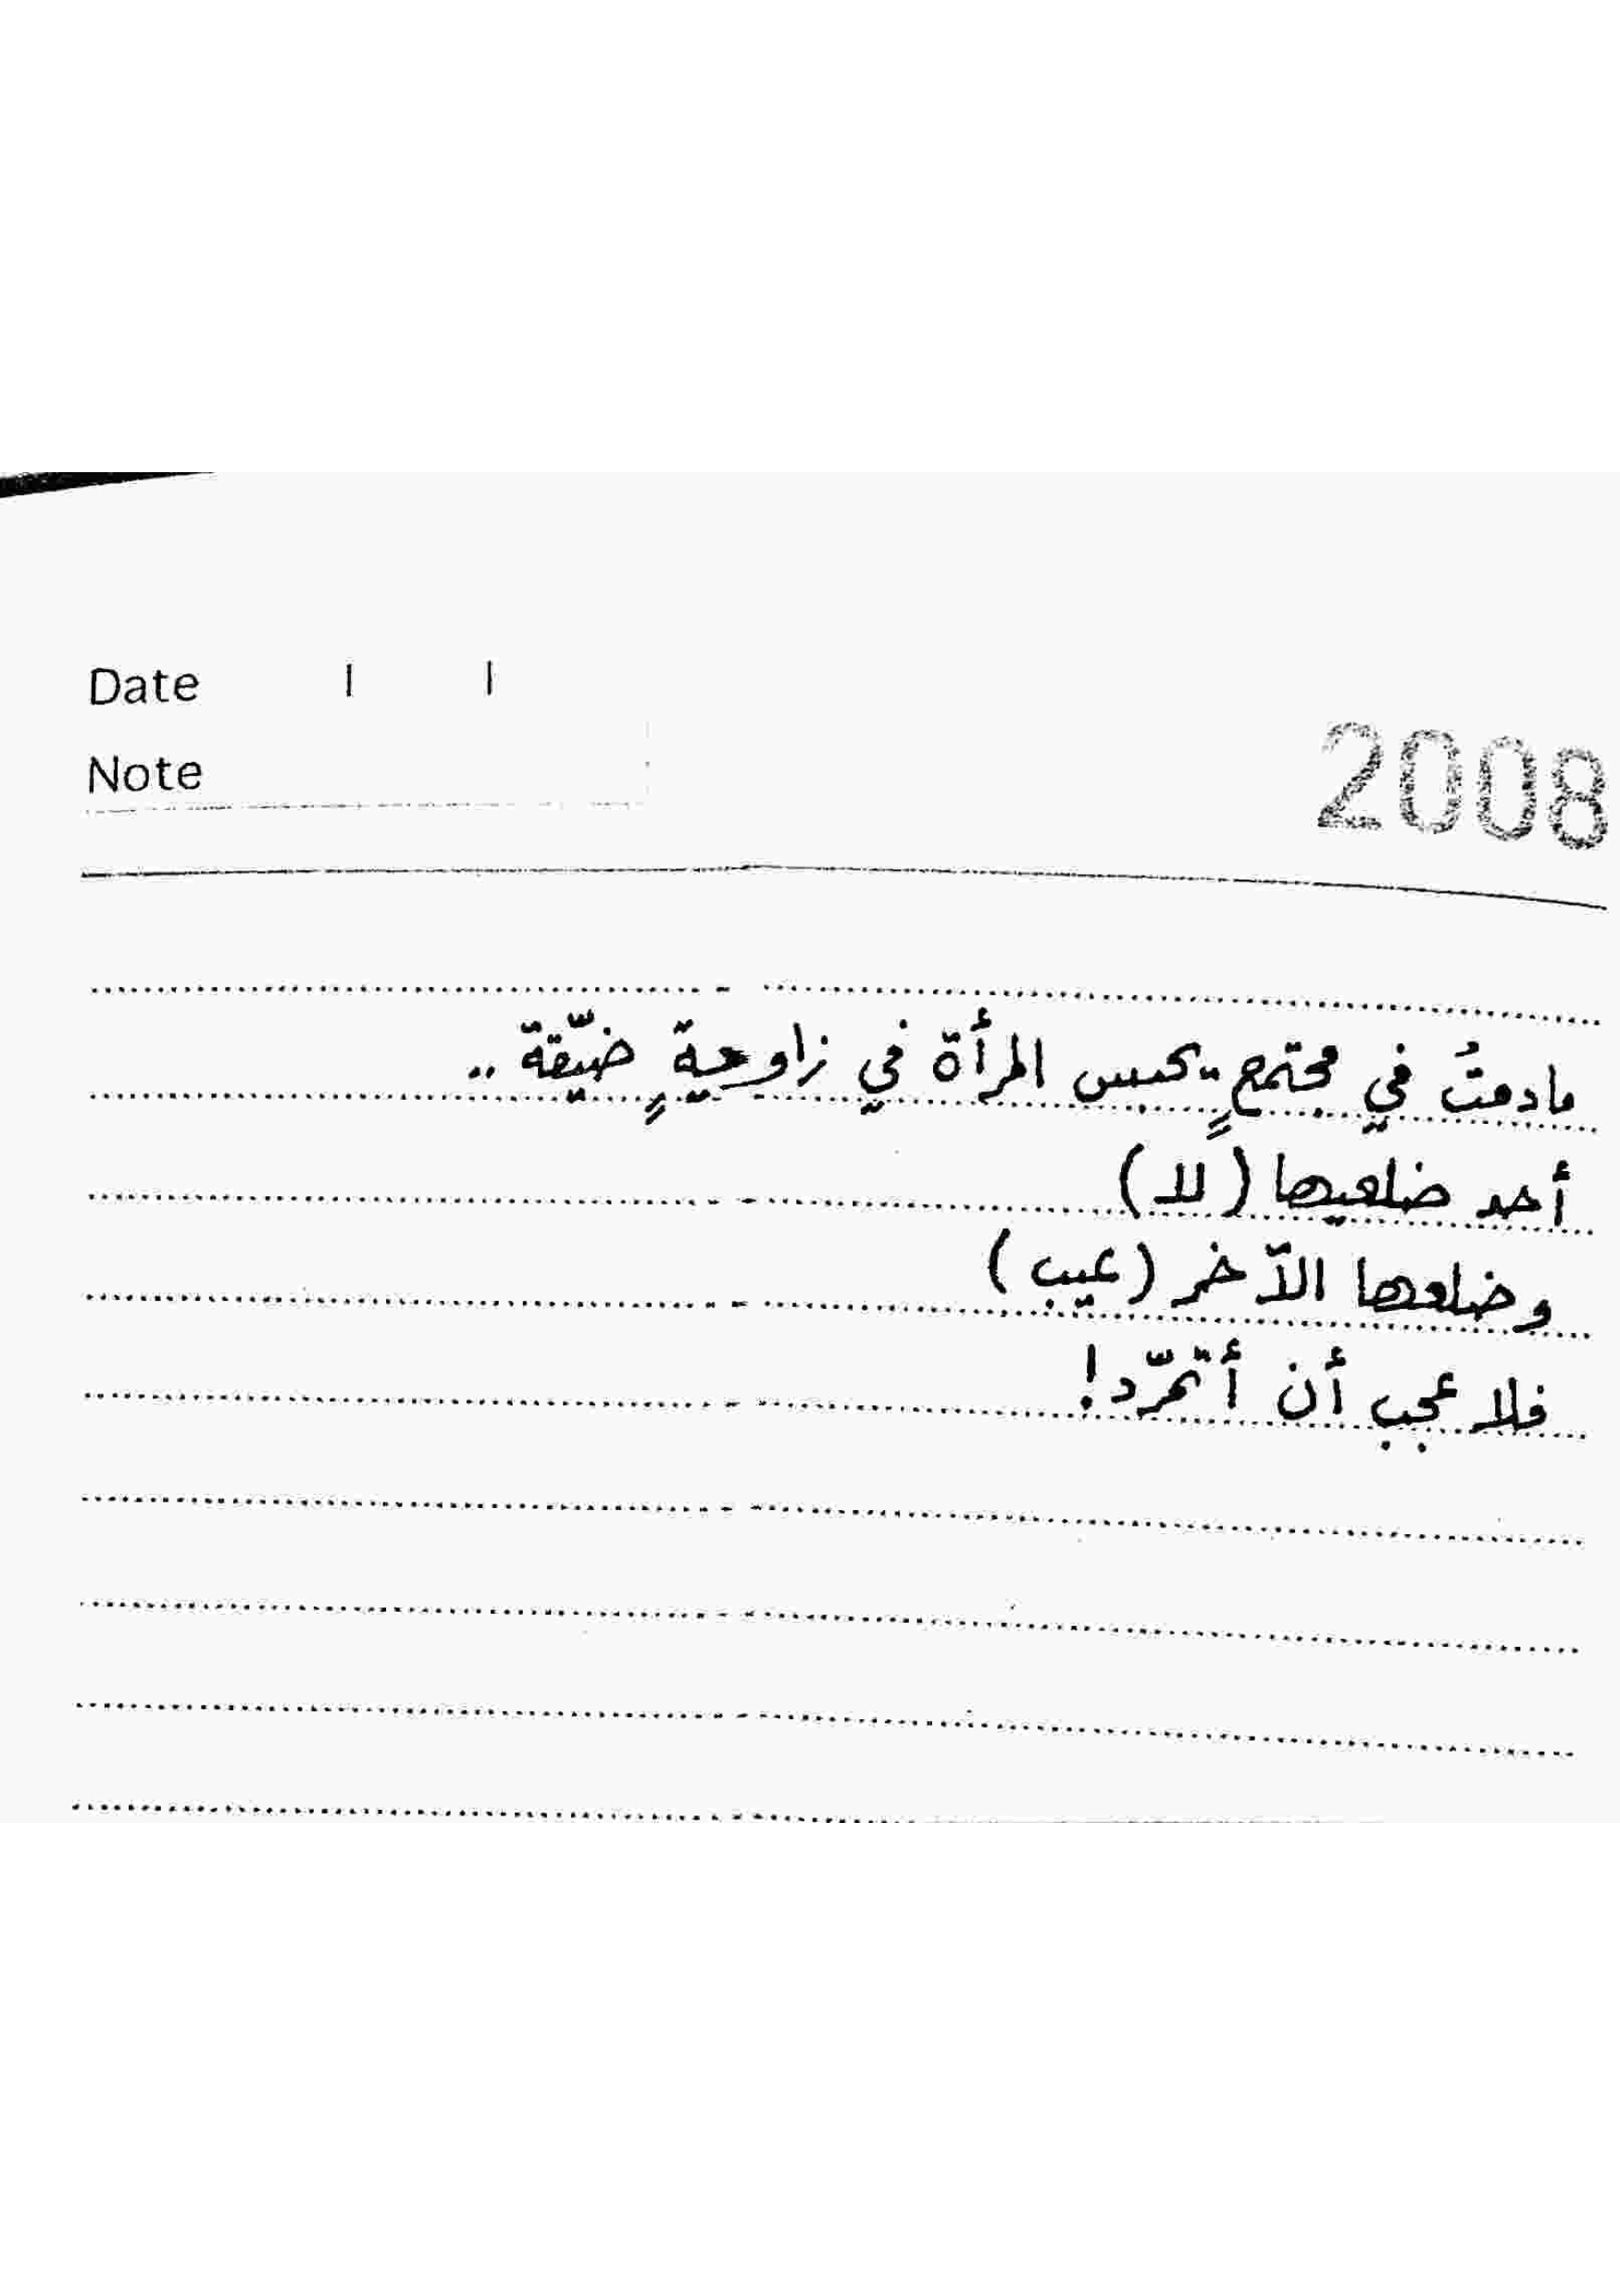 Date / /
Note
2008
مادمتُ في مجتمعٍ يحبس المرأة في زاوية ٍ ضيّقة ..
أحد ضلعيها (لا)
وضلعها الآخر (عيب)
فلا عجب أن أتمرّد!